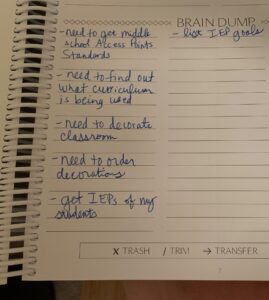 BRAIN DUMP
- need to get middle
school Access Points
Standards
- need to find out
what curriculum
is being used
- need to decorate
classroom
- need to order
decorations
- get IEPs of my
students
- list IEP goals
X TRASH / TRIM → TRANSFER